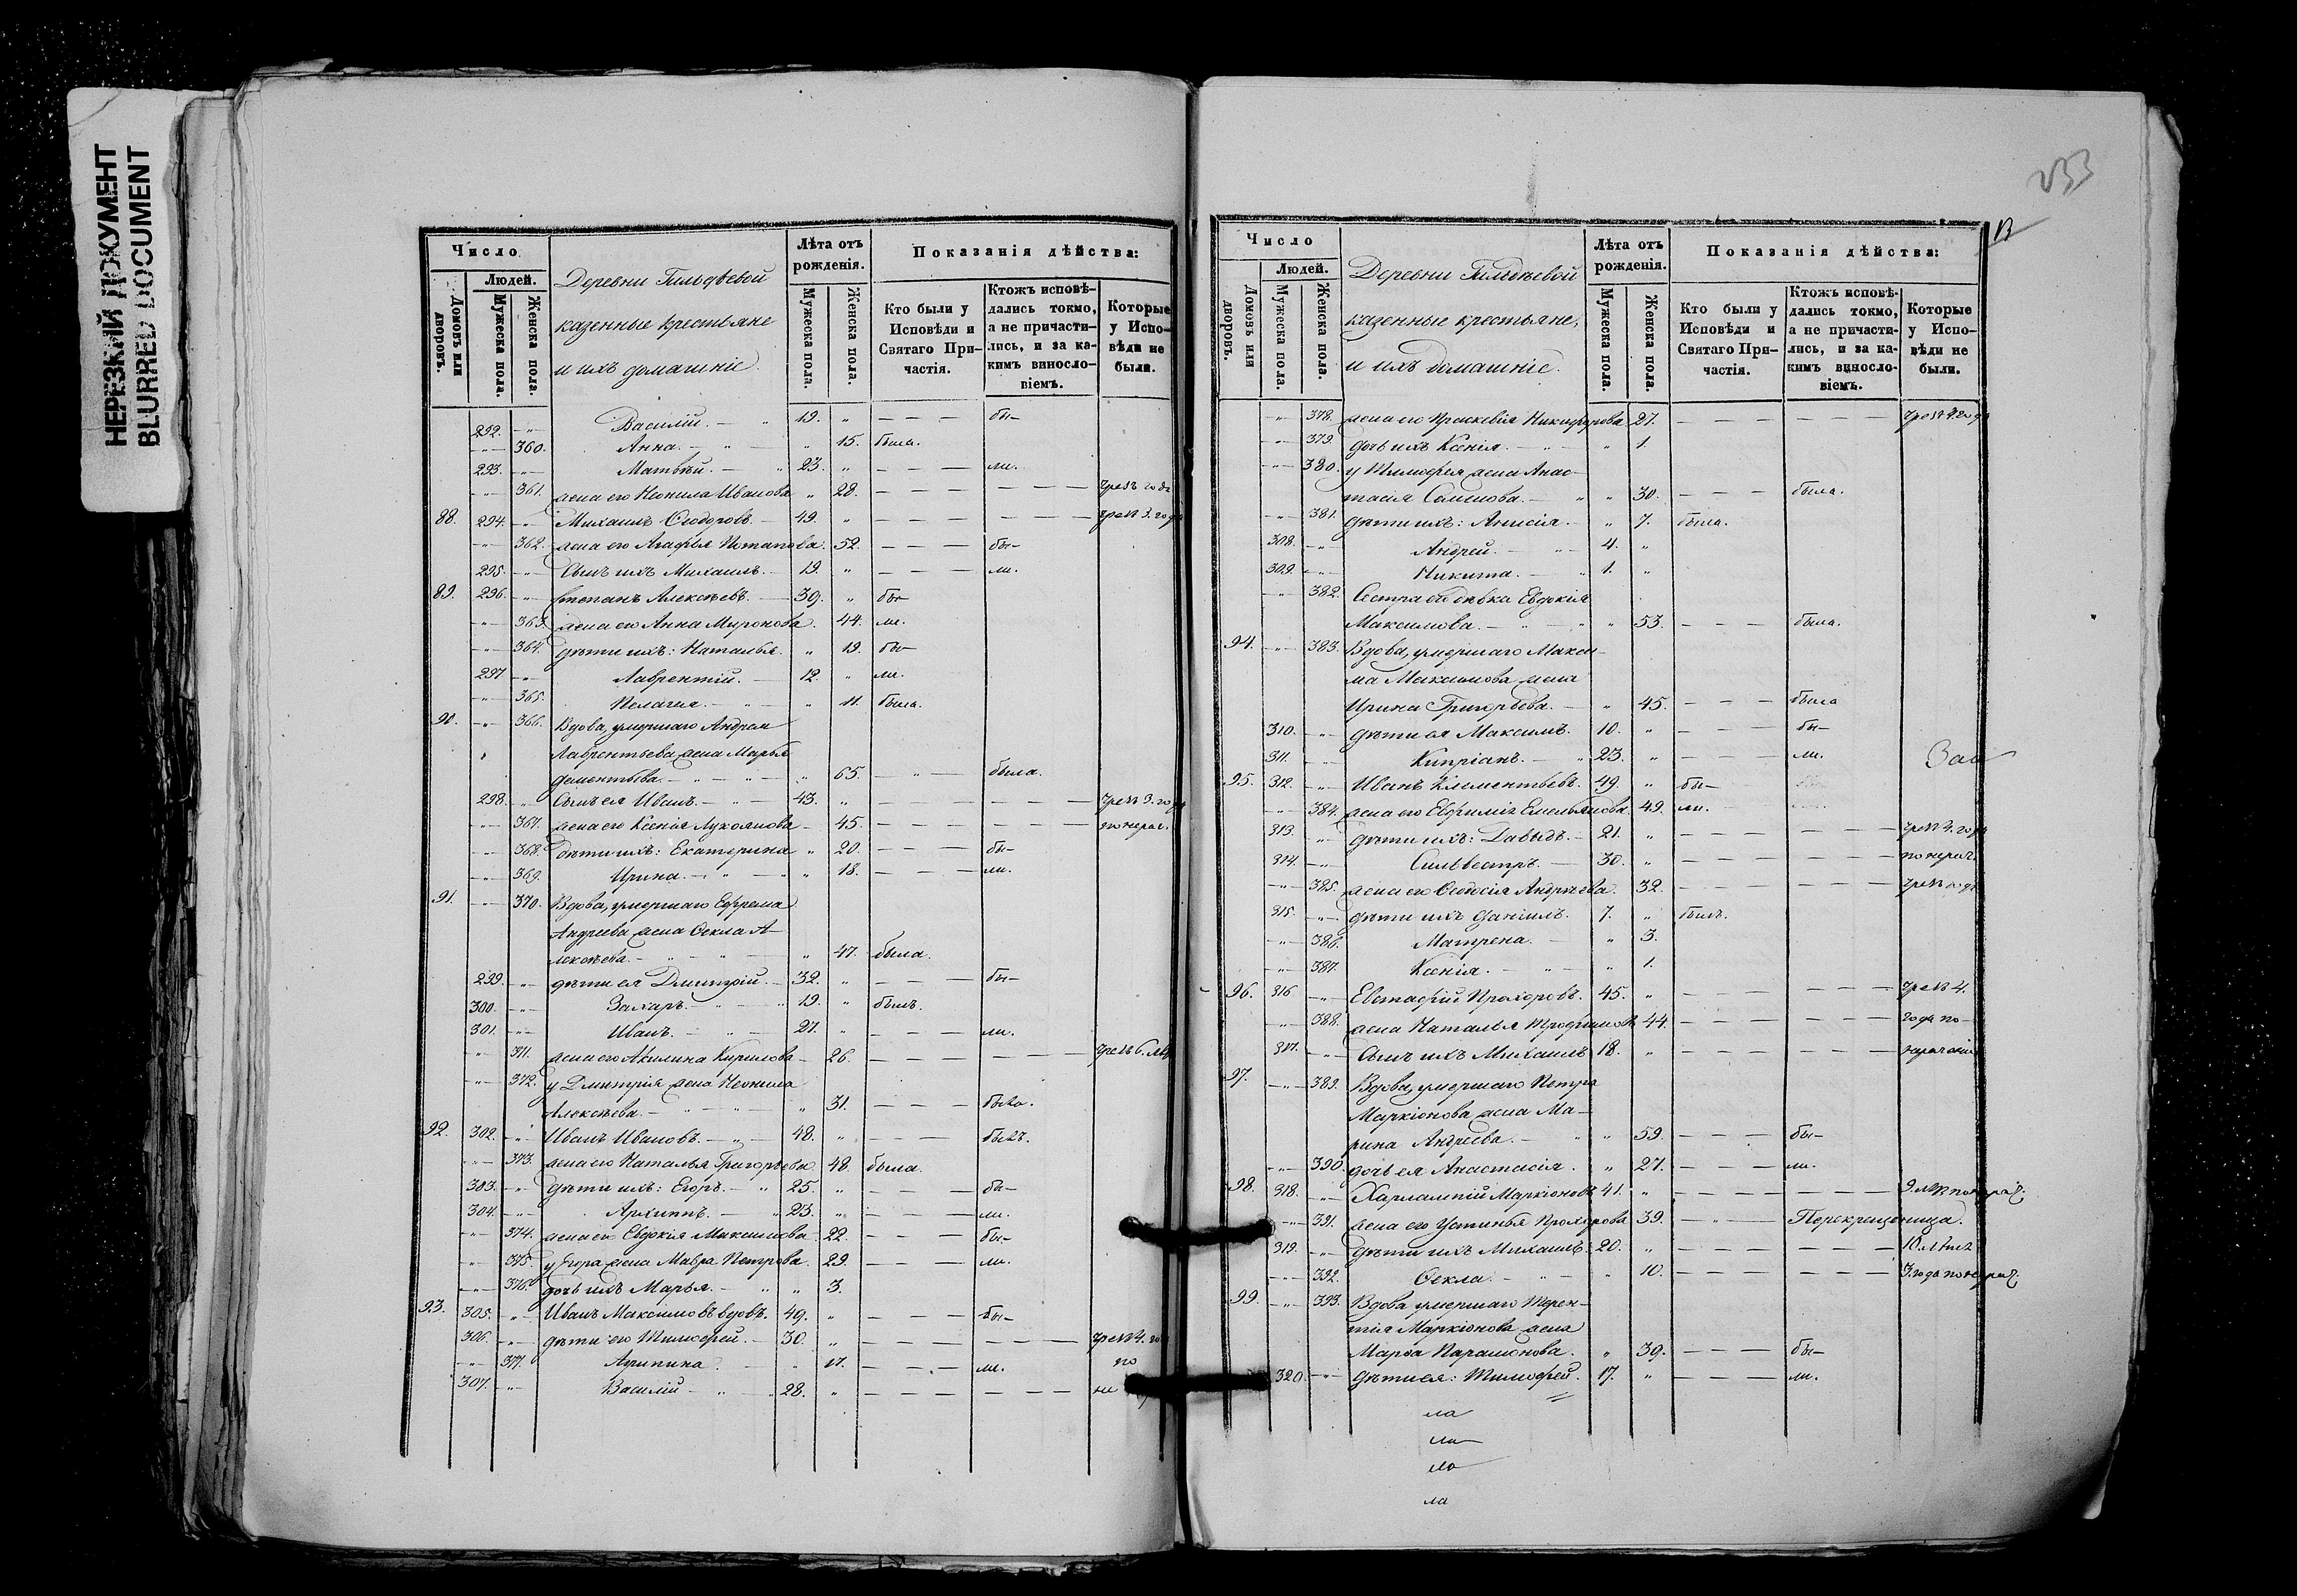 НЕРЕЗКИЙ ДОКУМЕНТ
BLURRED DOCUMENT
Число
Людей.
Домовъ или дворовъ.
Мужеска пола.
Женска пола.
Деревни
казенные крестьяне
и ихъ домашніе.
Лѣта отъ рожденія.
Мужеска пола.
Женска пола.
Показанія дѣйства:
Кто были у Исповѣди и Святаго Причастія.
Ктожъ исповѣдались токмо, а не причастились, и за какимъ винословіемъ.
Которые у Исповѣди не были.
292. Василій. 19. бы-
360. Анна. 15. была.
293. Матвѣй. 23. ли.
361. жена его Неонила Иванова 28. чрезъ
88. 294. Михаилъ Ѳеодоровъ. 49. чрезъ 3. года
362. жена его Агафья Потапова. 52. бы-
295. Сынъ ихъ Михаилъ. 19. ли.
89. 296. Степанъ Алексѣевъ. 39. бы-
363. жена его Анна Миронова. 44. ли.
364. дѣти ихъ: Наталья. 19. бы-
297. Лаврентій. 12. ли.
365. Пелагея. 11. была.
90. 366. Вдова, умершаго Андрея
Лаврентьева жена Марья
Дементьева. 65. была.
298. Сынъ ея Иванъ. 43. чрезъ 3. года
367. жена его Ксенія Лукоянова 45. по нерач.
368. дѣти ихъ: Екатерина 20. бы-
369. Ирина. 18. ли.
91. 370. Вдова, умершаго Ефрема
Андреева жена Ѳекла А-
лексѣева. 47. была.
299. дѣти ея Дмитрій. 32. бы-
300. Захаръ. 19. былъ.
301. Иванъ. 27. ли.
371. жена его Акилина Кирилова 26. чрезъ 6. лѣтъ
372. у Дмитрія жена Неонила
Алексѣева. 31. была.
92. 302. Иванъ Ивановъ. 48. былъ.
373. жена его Наталья Григорьева 48. была.
303. дѣти ихъ: Егоръ. 25. бы-
304. Архиппъ. 23. ли.
374. жена его Евдокія Максимова 22. бы-
375. у Егора жена Мавра Петрова. 29. ли.
376. дочь ихъ Марья. 3.
93. 305. Иванъ Максимовъ вдовъ. 49. бы-
306. дѣти его Тимофей. 30. чрезъ 4. го
377. Агрипина. 17. ли. по
307. Василій 28. не
233
Число
Людей.
Домовъ или дворовъ.
Мужеска пола.
Женска пола.
Деревни
казенные крестьяне,
и ихъ домашніе.
Лѣта отъ рожденія.
Мужеска пола.
Женска пола.
Показанія дѣйства:
Кто были у Исповѣди и Святаго Причастія.
Ктожъ исповѣдались токмо, а не причастились, и за какимъ винословіемъ.
Которые у Исповѣди не были.
378. жена его Праскевія Никифорова 27. чрезъ 2. года
379. дочь ихъ Ксенія. 1.
380. у Тимофея жена Анас-
тасія Семенова. 30. была.
381. дѣти ихъ: Анисія. 7. была.
308. Андрей. 4.
309. Никита. 1.
382. Сестра его дѣвка Евдокія
Максимова. 53. была.
94. 383. Вдова, умершаго Макси-
ма Максимова жена
Ирина Григорьева. 45. была
310. дѣти ея Максимъ. 10. бы-
311. Кипріанъ. 23. ли.
Зав
95. 312. Иванъ Клементьевъ. 49. бы-
384. жена его Евфимія Емельянова. 49. ли.
313. дѣти ихъ: Давыдъ. 21. чрезъ 4. года
314. Сильвестръ. 30. по нерач.
385. жена его Ѳедосія Андреева. 32. чрезъ
315. дѣти ихъ Даніилъ. 7. былъ.
386. Матрена. 3.
387. Ксенія. 1.
96. 316. Евстафій Прохоровъ. 45. чрезъ 4.
388. жена Наталья Трофимова 44. года по-
317. Сынъ ихъ Михаилъ 18.
97. 389. Вдова, умершаго Петра
Маркіонова жена Ма-
рина Андреева. 59. бы-
390. дочь ея Анастасія. 27. ли.
98. 318. Харлампій Маркіоновъ 41. 9. лѣтъ по нерач.
391. жена его Устинья Прохорова 39. Перекрещеница.
319. дѣти ихъ Михаилъ. 20. 10. лѣтъ
392. Ѳекла. 10. 3. года по нерач.
99. 393. Вдова умершаго Терен-
тія Маркіонова жена
Марѳа Парамонова. 39. бы-
320. дѣти ея: Тимофей. 17. ли.
ла
ли
ло
ла